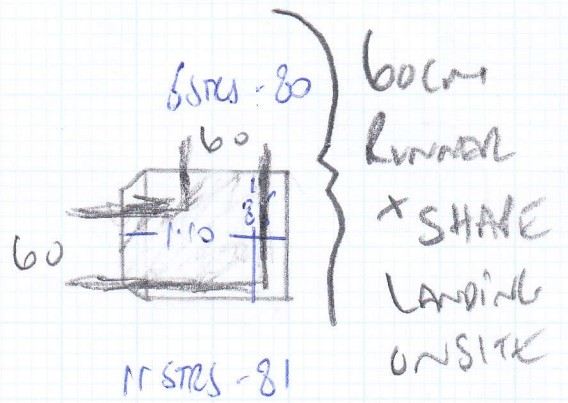 STRS - 80
60
1.10
60
11 STRS - 81
60cm
RUNNER
x SHAPE
LANDING
ONSITE